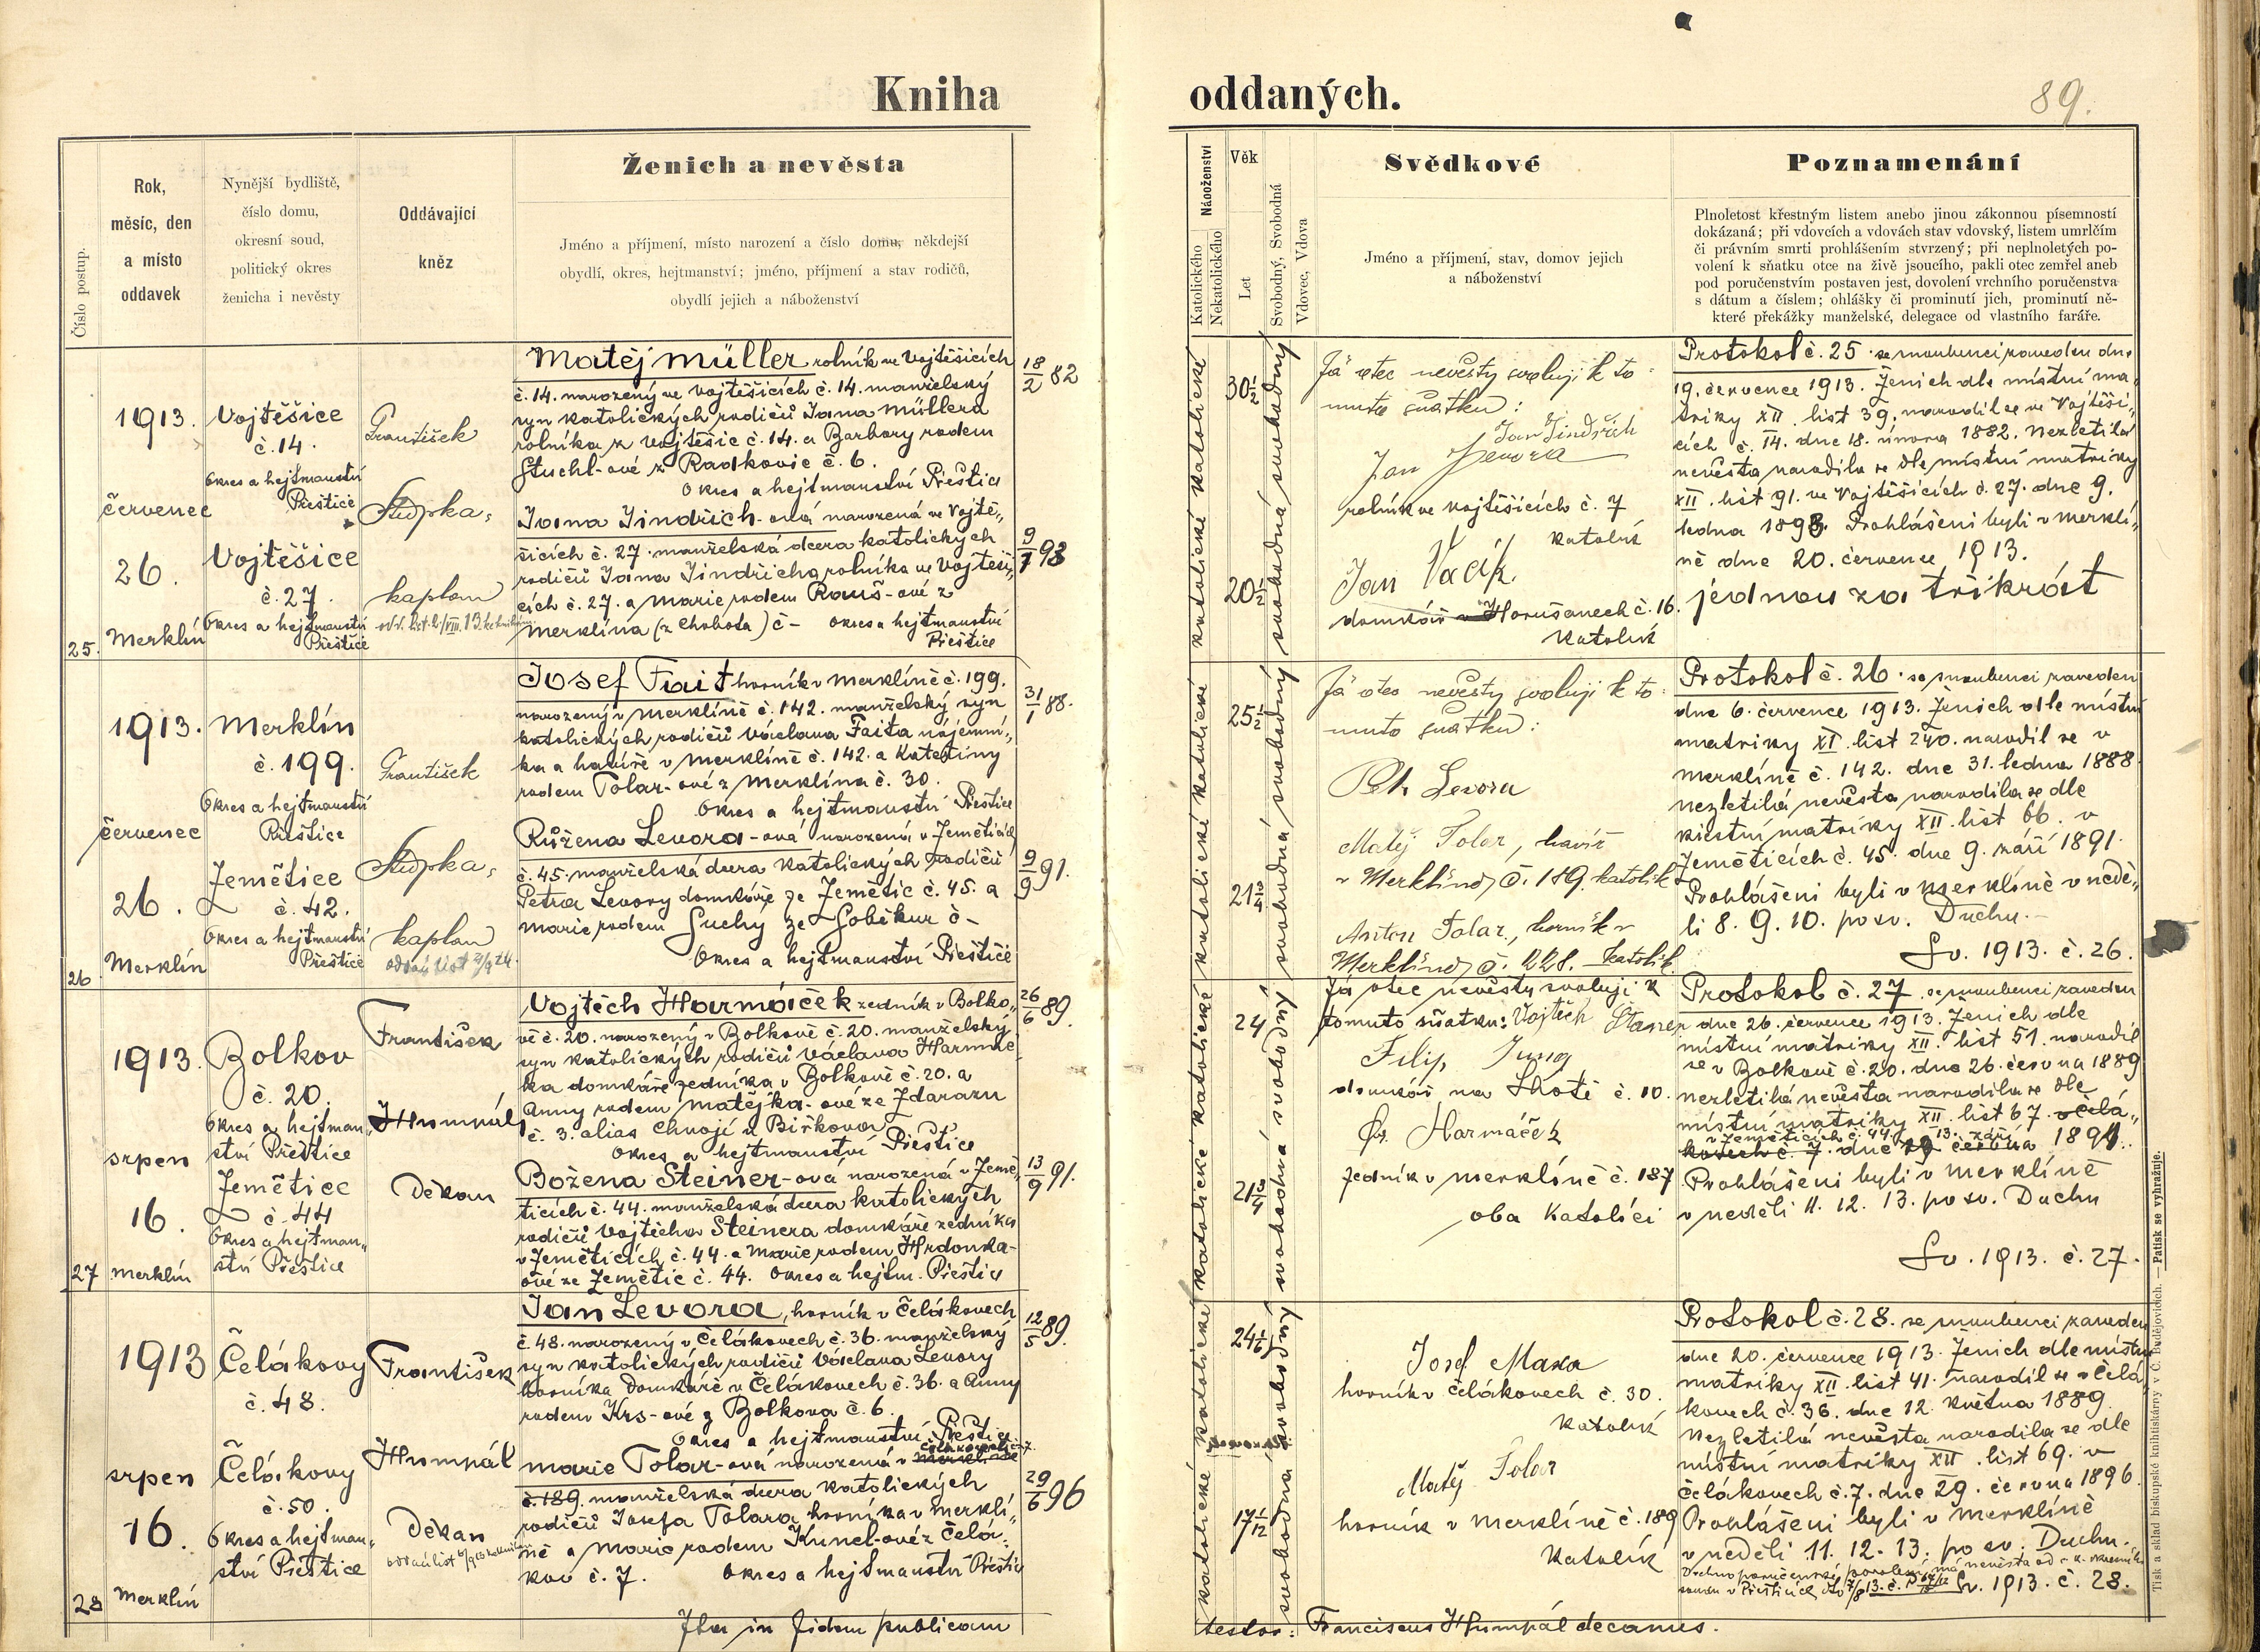 Kniha
oddaných.
89.
Číslo postup.
Rok,
měsíc, den
a místo
oddavek
Nynější bydliště,
číslo domu,
okresní soud,
politický okres
ženicha i nevěsty
Oddávající
kněz
Ženich a nevěsta
Jméno a příjmení, místo narození a číslo domu, někdejší
obydlí, okres, hejtmanství; jméno, příjmení a stav rodičů,
obydlí jejich a náboženství
Náboženství
Katolického
Nekatolického
Věk
Let
Svobodný, Svobodná
Vdovec, Vdova
Svědkové
Jméno a příjmení, stav, domov jejich
a náboženství
Poznamenání
Plnoletost křestným listem anebo jinou zákonnou písemností
dokázaná; při vdovcích a vdovách stav vdovský, listem umrlčím
či právním smrti prohlášením stvrzený; při neplnoletých po-
volení k sňatku otce na živě jsoucího, pakli otec zemřel aneb
pod poručenstvím postaven jest, dovolení vrchního poručenstva
s dátum a číslem; ohlášky či prominutí jich, prominutí ně-
které překážky manželské, delegace od vlastního faráře.
25.
1913.
červenec
26.
Merklín
Vojtěšice
č. 14.
Okres a hejtmanství
Přeštice
Vojtěšice
č. 27.
Okres a hejtmanství
Přeštice
František
Stupka,
kaplan
Matěj Müller rolník ve Vojtěšicích
č. 14. narozený ve Vojtěšicích č. 14. manželský
syn katolických rodičů Jana Müllera
rolníka z Vojtěšic č. 14. a Barbory rodem
Stuchl-ové z Radkovic č. 6.
Okres a hejtmanství Přeštice
18/2 82
Jana Jindřich-ová narozená ve Vojtě„
šicích č. 27. manželská dcera katolických
rodičů Jana Jindřicha rolníka ve Vojtěši„
cích č. 27. a Marie rodem Rauš-ové z
Merklína (z Chobota) č - Okres a hejtmanství
Přeštice
9/1 93
katolické katolické
30½
20½
svobodná svobodný
Já otec nevěsty svoluji k to-
muto sňatku:
Jan Jindřich
Jan Levora
rolník ve Vojtěšicích č. 7
katolík
Jan
domkář v Horušanech č. 16.
katolík
Protokol č. 25. se snoubenci zaveden dne
19. července 1913. Ženich dle místní ma„
triky XII. list 39. narodil se ve Vojtěši„
cích č. 14. dne 18. února 1882. Nezletilá
nevěsta narodila se dle místní matriky
XII. list 91. ve Vojtěšicích č. 27. dne 9.
ledna 1893. Prohlášeni byli v Merklí„
ně dne 20. července 1913.
jednou za třikrát
26
1913.
červenec
26.
Merklín
Merklín
č. 199.
Okres a hejtmanství
Přeštice
Zemětice
č. 42.
Okres a hejtmanství
Přeštice
František
Stupka,
kaplan
Josef Fait horník v Merklíně č. 199.
narozený v Merklíně č. 142. manželský syn
katolických rodičů Václava Faita nájemní„
ka a havíře v Merklíně č. 142. a Kateřiny
rodem Tolar-ové z Merklína č. 30.
Okres a hejtmanství Přeštice
31/1 88.
Růžena Levora-ová narozená v Zeměticích
č. 45. manželská dcera katolických rodičů
Petra Levory domkáře ze Zemětic č. 45. a
Marie rodem Suchý ze Soběkur č -
Okres a hejtmanství Přeštice
9/9 91.
katolické katolické
25½
21¾
svobodná svobodný
Já otec nevěsty svoluji k to-
muto sňatku:
Petr Levora
Matěj Tolar, havíř
v Merklíně č. 189. katolík
Anton Tolar, horník v
Merklíně č. 228. katolík
Protokol č. 26. se snoubenci zaveden
dne 6. července 1913. Ženich dle místní
matriky XI. list 240. narodil se v
Merklíně č. 142. dne 31. ledna 1888.
nezletilá nevěsta narodila se dle
místní matriky XII. list 66. v
Zeměticích č. 45. dne 9. září 1891.
Prohlášeni byli v Merklíně v nedě„
li 8. 9. 10. po sv. Duchu.
Sv. 1913. č. 26.
27
1913.
srpen
16.
Merklín
Bolkov
č. 20.
Okres a hejtman„
ství Přeštice
Zemětice
č. 44
Okres a hejtman„
ství Přeštice
František
Humpál
Děkan
Vojtěch Harmáček zedník v Bolko„
vě č. 20. narozený v Bolkově č. 20. manželský
syn katolických rodičů Václava Harmáč
ka domkáře zedníka v Bolkově č. 20. a
Anny rodem Matějka-ové ze Zdarazu
č. 3. alias Chvojí u Biřkova
Okres a hejtmanství Přeštice
26/6 89.
Božena Steiner-ová narozená v Země„
ticích č. 44. manželská dcera katolických
rodičů Vojtěcha Steinera domkáře zedníka
v Zeměticích č. 44. a Marie rodem Hrdonka-
ové ze Zemětic č. 44. Okres a hejtm. Přeštice
13/9 91.
katolické katolické
24
21¾
svobodná svobodný
Já otec nevěsty svoluji k
tomuto sňatku: Vojtěch
Filip Jung
domkář na Lhotě č. 10.
Harmáček
zedník v Merklíně č. 187
oba katolíci
Protokol č. 27. se snoubenci zaveden
dne 26. července 1913. Ženich dle
místní matriky XII. list 51. narodil
se v Bolkově č. 20. dne 26. června 1889
nezletilá nevěsta narodila se dle
místní matriky XII. list 67. v Čelá„
v Zeměticích č. 44. 13. září
kovech č. 7. dne června 1891.
Prohlášeni byli v Merklíně
v neděli 11. 12. 13. po sv. Duchu
Sv. 1913. č. 27.
28
1913
srpen
16.
Merklín
Čelákovy
č. 48.
Čelákovy
č. 50.
Okres a hejtman„
ství Přeštice
František
Humpál
Děkan
Jan Levora, horník v Čelákovech
č 48. narozený v Čelákovech č. 36. manželský
syn katolických rodičů Václava Levory
horníka domkáře v Čelákovech č. 36. a Anny
rodem Krs-ové z Bolkova č. 6.
Okres a hejtmanství Přeštice
12/5 89.
Čelákovech č. 7.
Marie Tolar-ová narozená v Merklíně
č. 189. manželská dcera katolických
rodičů Josefa Tolara horníka v Merklí„
ně a Marie rodem Kunel-ové z Čelá-
kov č. 7. Okres a hejtmanství Přeštice
29/6 96
katolické katolické
24
17
svobodná svobodný
Josef Maxa
horník v Čelákovech č. 30.
katolík
Matěj Tolar
horník v Merklíně č. 189
katolík
Protokol č. 28. se snoubenci zaveden
dne 20. července 1913. Ženich dle místní
matriky XII. list 41. narodil se v Čelá„
kovech č. 36. dne 12. května 1889.
Nezletilá nevěsta narodila se dle
místní matriky XII. list 69. v
Čelákovech č. 7. dne 29. června 1896.
Prohlášeni byli v Merklíně
v neděli 11. 12. 13. po sv. Duchu.
Sv. 1913. č. 28.
Ita in fidem publicam
testor: Franciscus Humpál decanus.
Tisk a sklad biskupské knihtiskárny v Č. Budějovicích. — Patisk se vyhražuje.